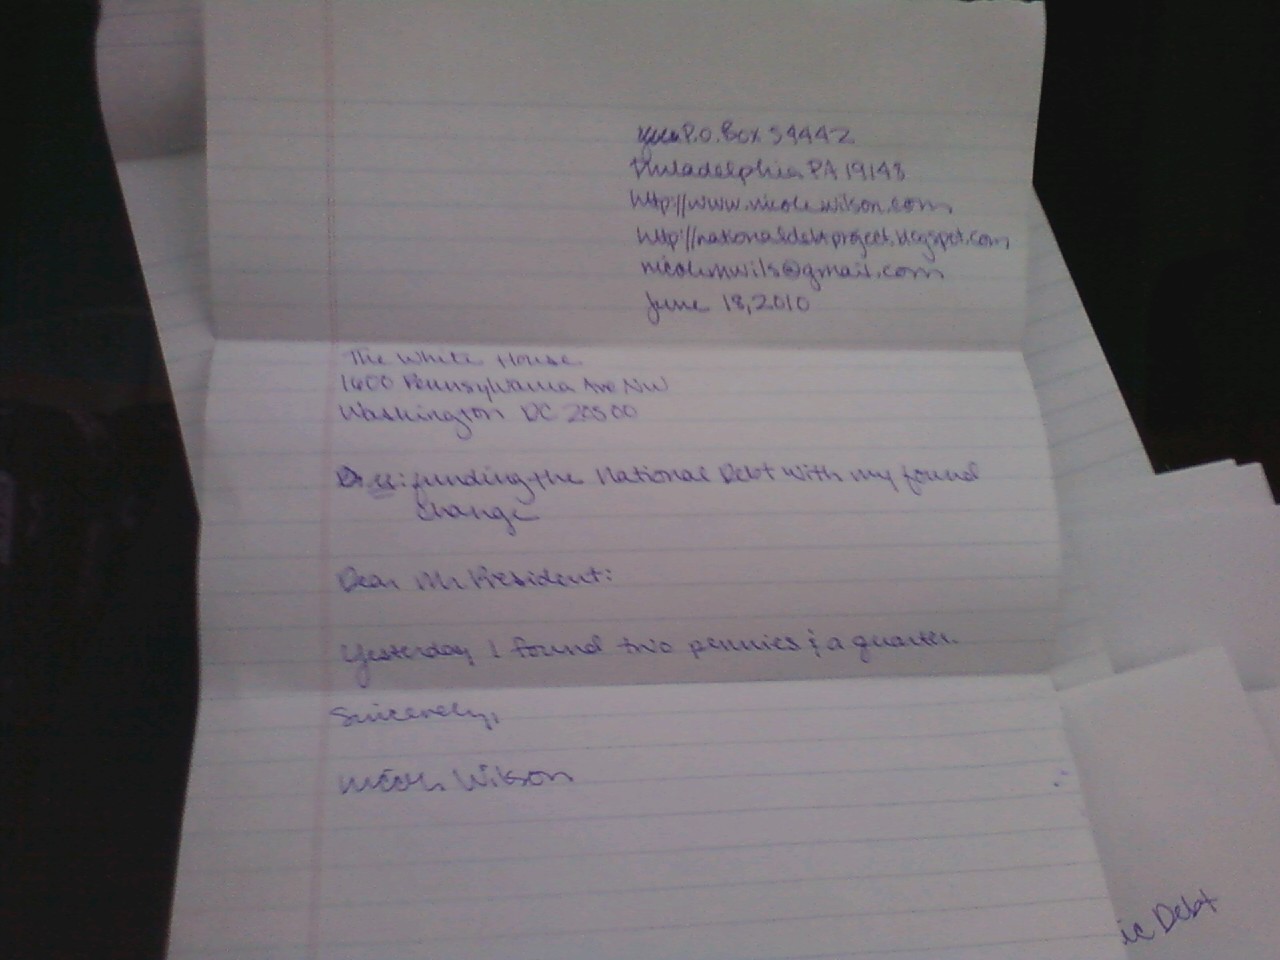 P.O. Box 54442
Philadelphia, PA 19148
http://www.nicolewilson.com
http://nationaldebtproject.blogspot.com
nicolemwils@gmail.com
June 18, 2010
The White House
1600 Pennsylvania Ave NW
Washington DC 20500
re: funding the National Debt with my found
change
Dear Mr President:
Yesterday I found two pennies & a quarter.
Sincerely,
Nicole Wilson
ic Debt